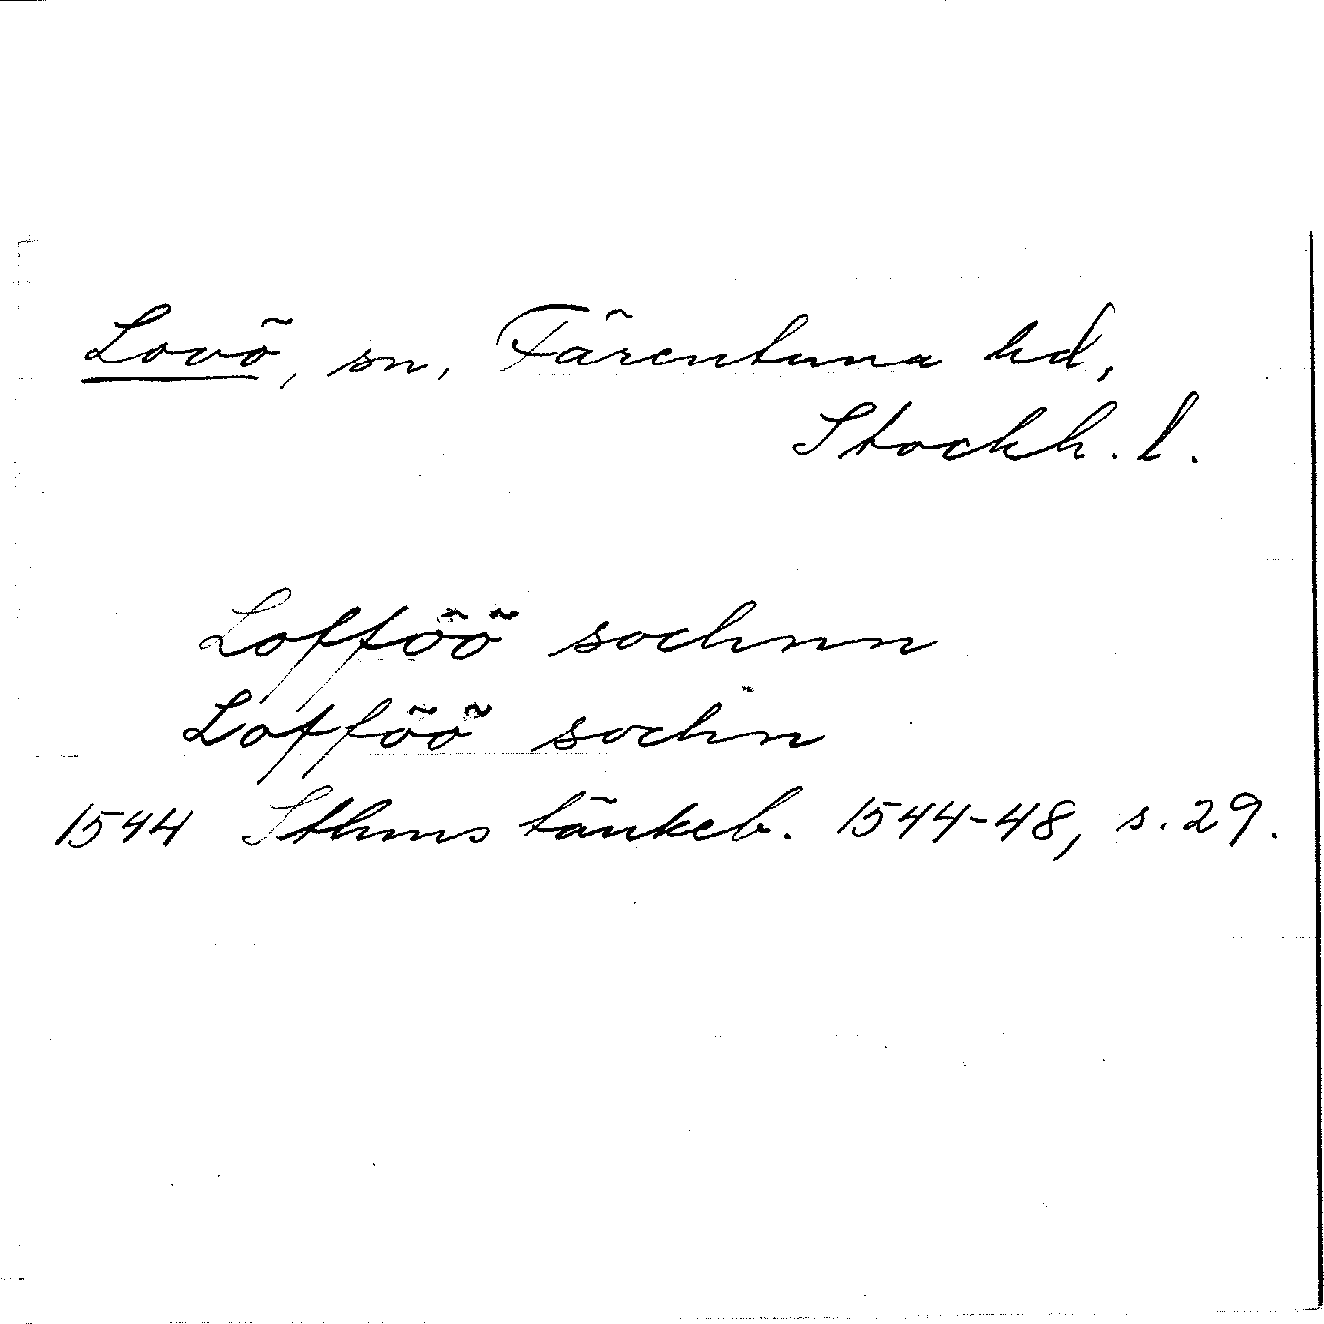 Lovö, sn, Färentuna hd,
Stockh. l.
Lofföö sochnn
Lofföö sochn
1544 Sthms tänkeb. 1544-48, s. 29.